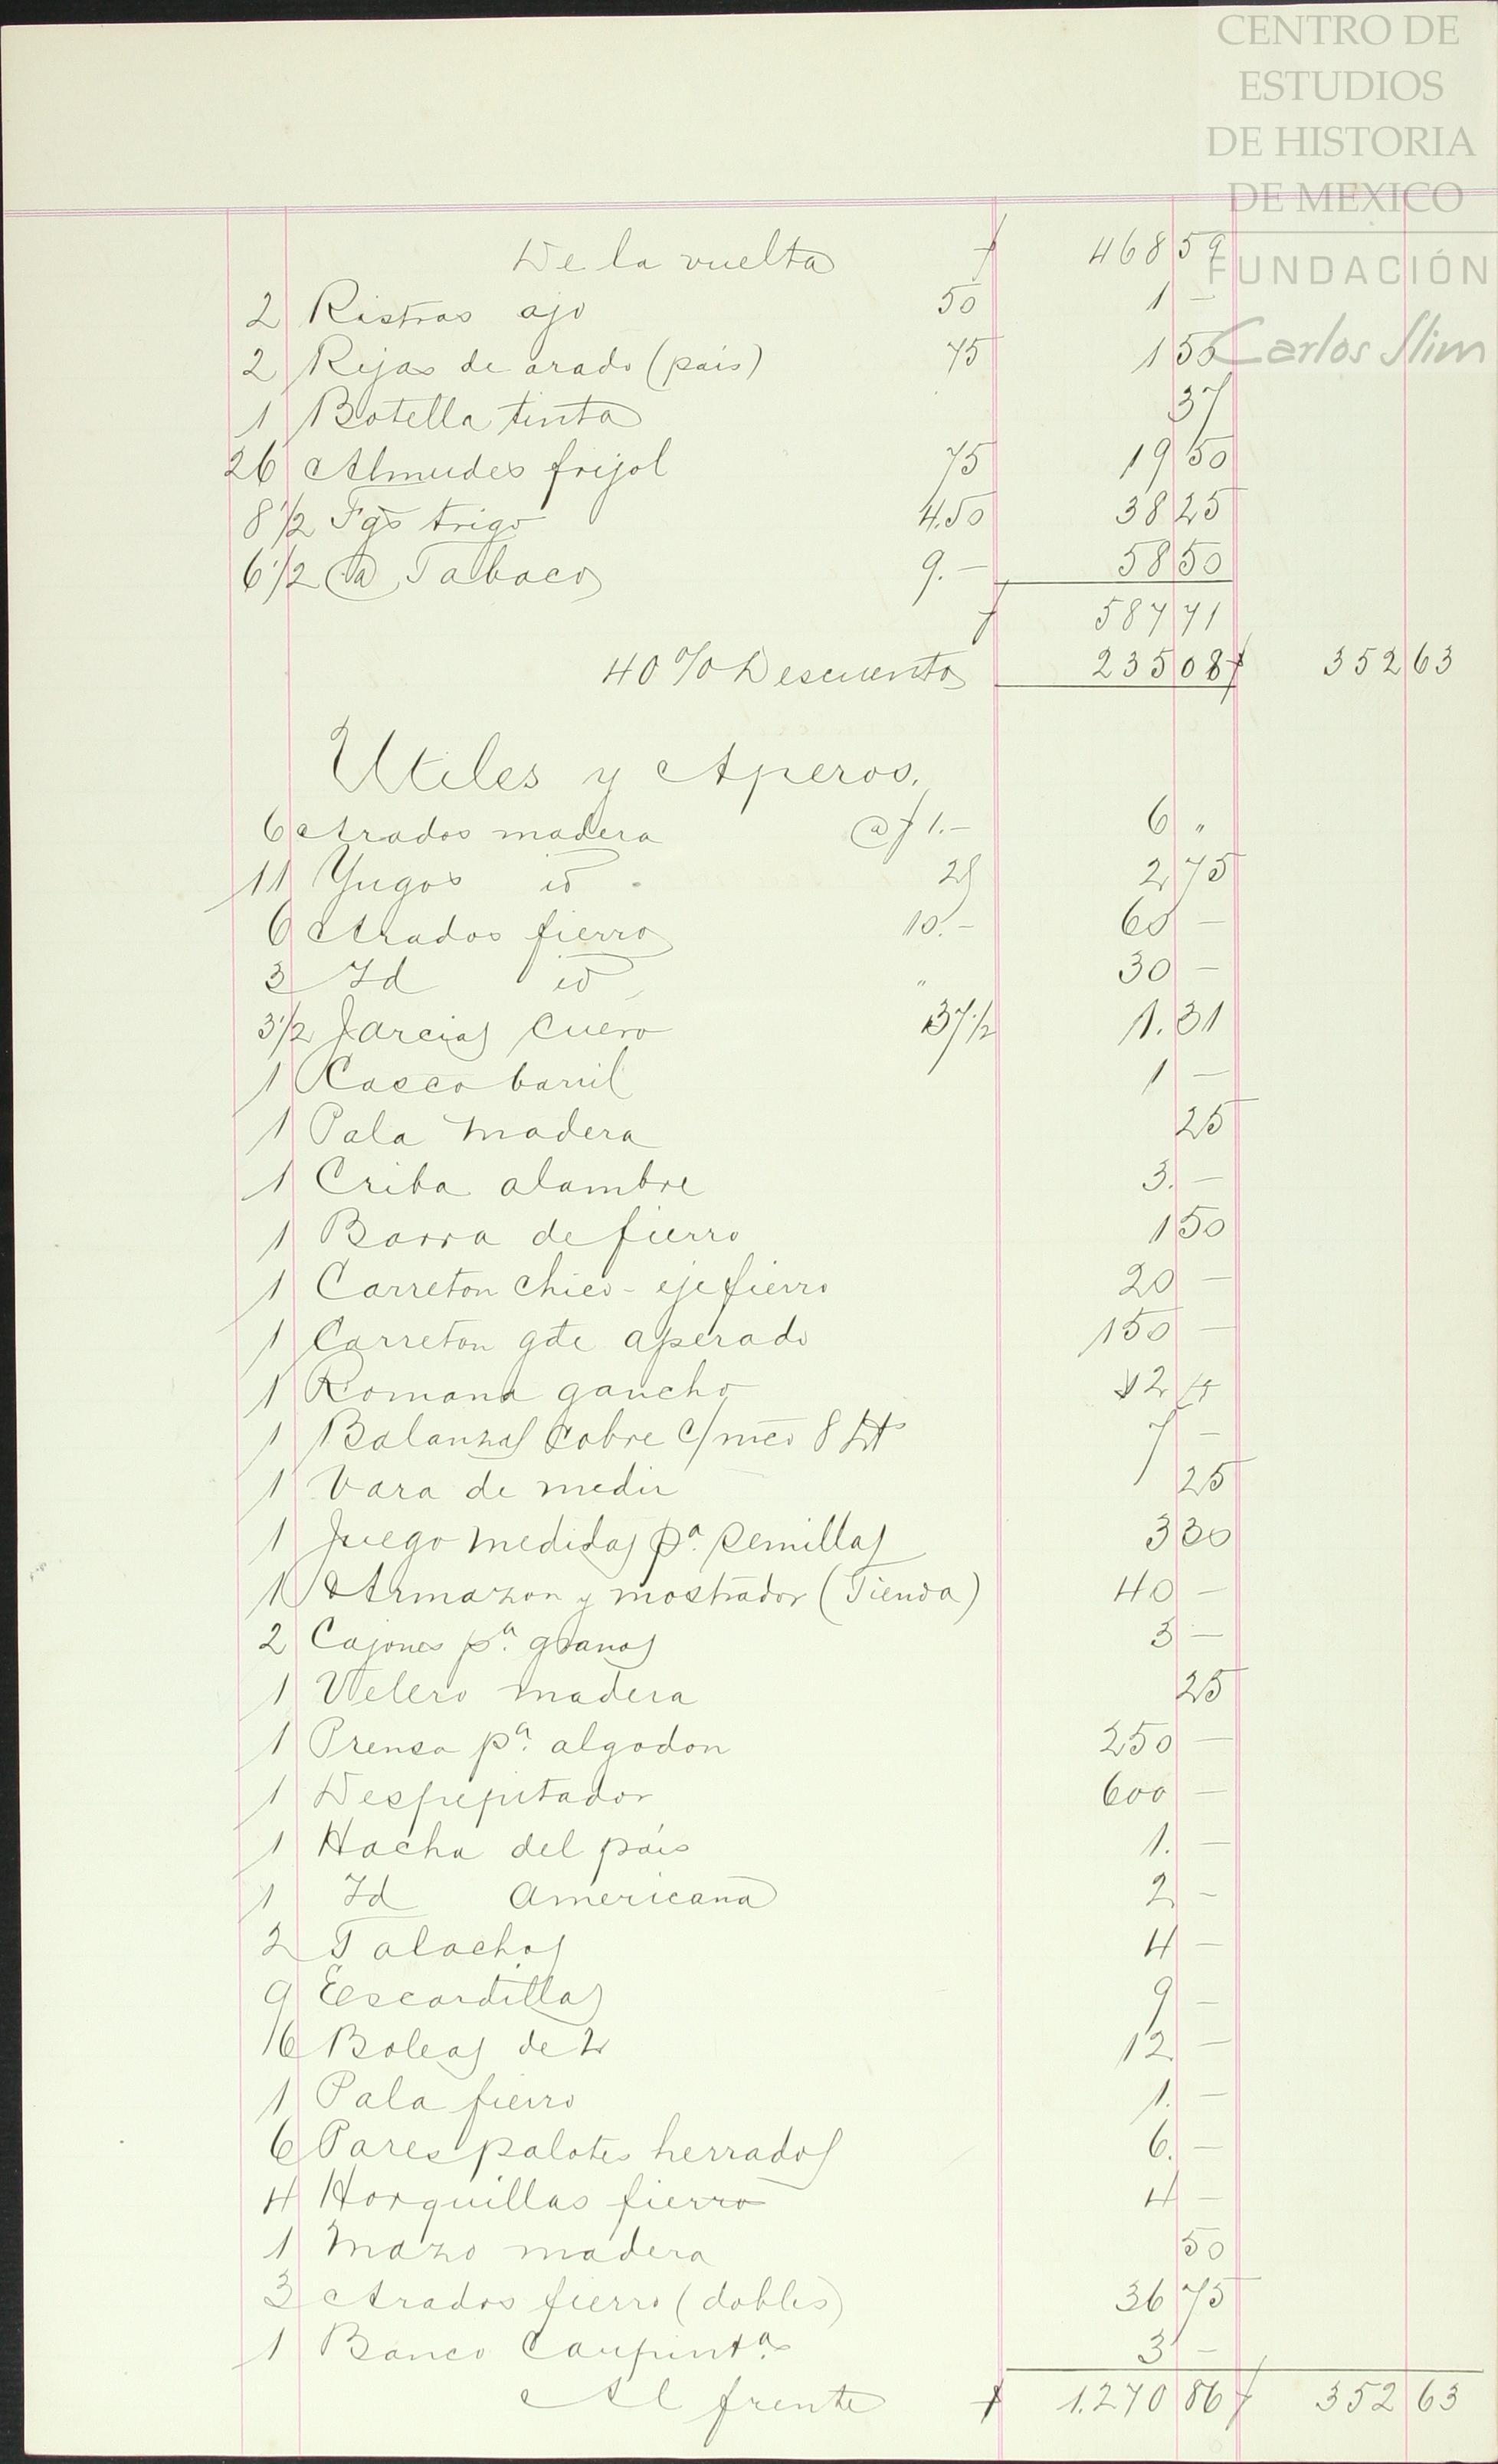 CENTRO DE
ESTUDIOS
DE HISTORIA
DE MEXICO
FUNDACIÓN
Carlos Slim
De la vuelta $ 468 59
2 Ristras ajo 50 1 –
2 Rejas de arado (país) 75 1 50
1 Botella tinta 37
26 Almudes frijol 75 19 50
8 1/2 Fgs trigo 4.50 38 25
6 1/2 @ Tabaco 9.– 58 50
$ 587 71
40 % Descuento 235 08 $ 352 63
Utiles y Aperos.
6 Arados madera @ $ 1.– 6 "
11 Yugos id 25 2 75
6 Arados fierro 10.– 60 –
3 Id id " 30 –
3 1/2 Jarcias cuero 37 1/2 1.31
1 Casco barril 1 –
1 Pala madera 25
1 Criba alambre 3. –
1 Barra de fierro 1 50
1 Carreton chico - eje fierro 20 –
1 Carreton gde aperado 150 –
1 Romana gancho 12
1 Balanzas cobre c/ mco 8 lbs 7 –
1 Vara de medir 25
1 Juego medidas pa. semillas 3 30
1 Armazon y mostrador (Tienda) 40 –
2 Cajones pa. granos 3 –
1 Velero madera 25
1 Prensa pa. algodon 250 –
1 Despepitador 600 –
1 Hacha del país 1. –
1 Id Americana 2 –
2 Talachos 4 –
9 Escardillas 9 –
16 Boleas de 2 12 –
1 Pala fierro 1. –
6 Pares palotes herrados 6. –
4 Horquillas fierro 4 –
1 Mazo madera 50
3 Arados fierro (dobles) 36 75
1 Banco Carpinta. 3 –
Al frente $ 1.270 86 $ 352 63